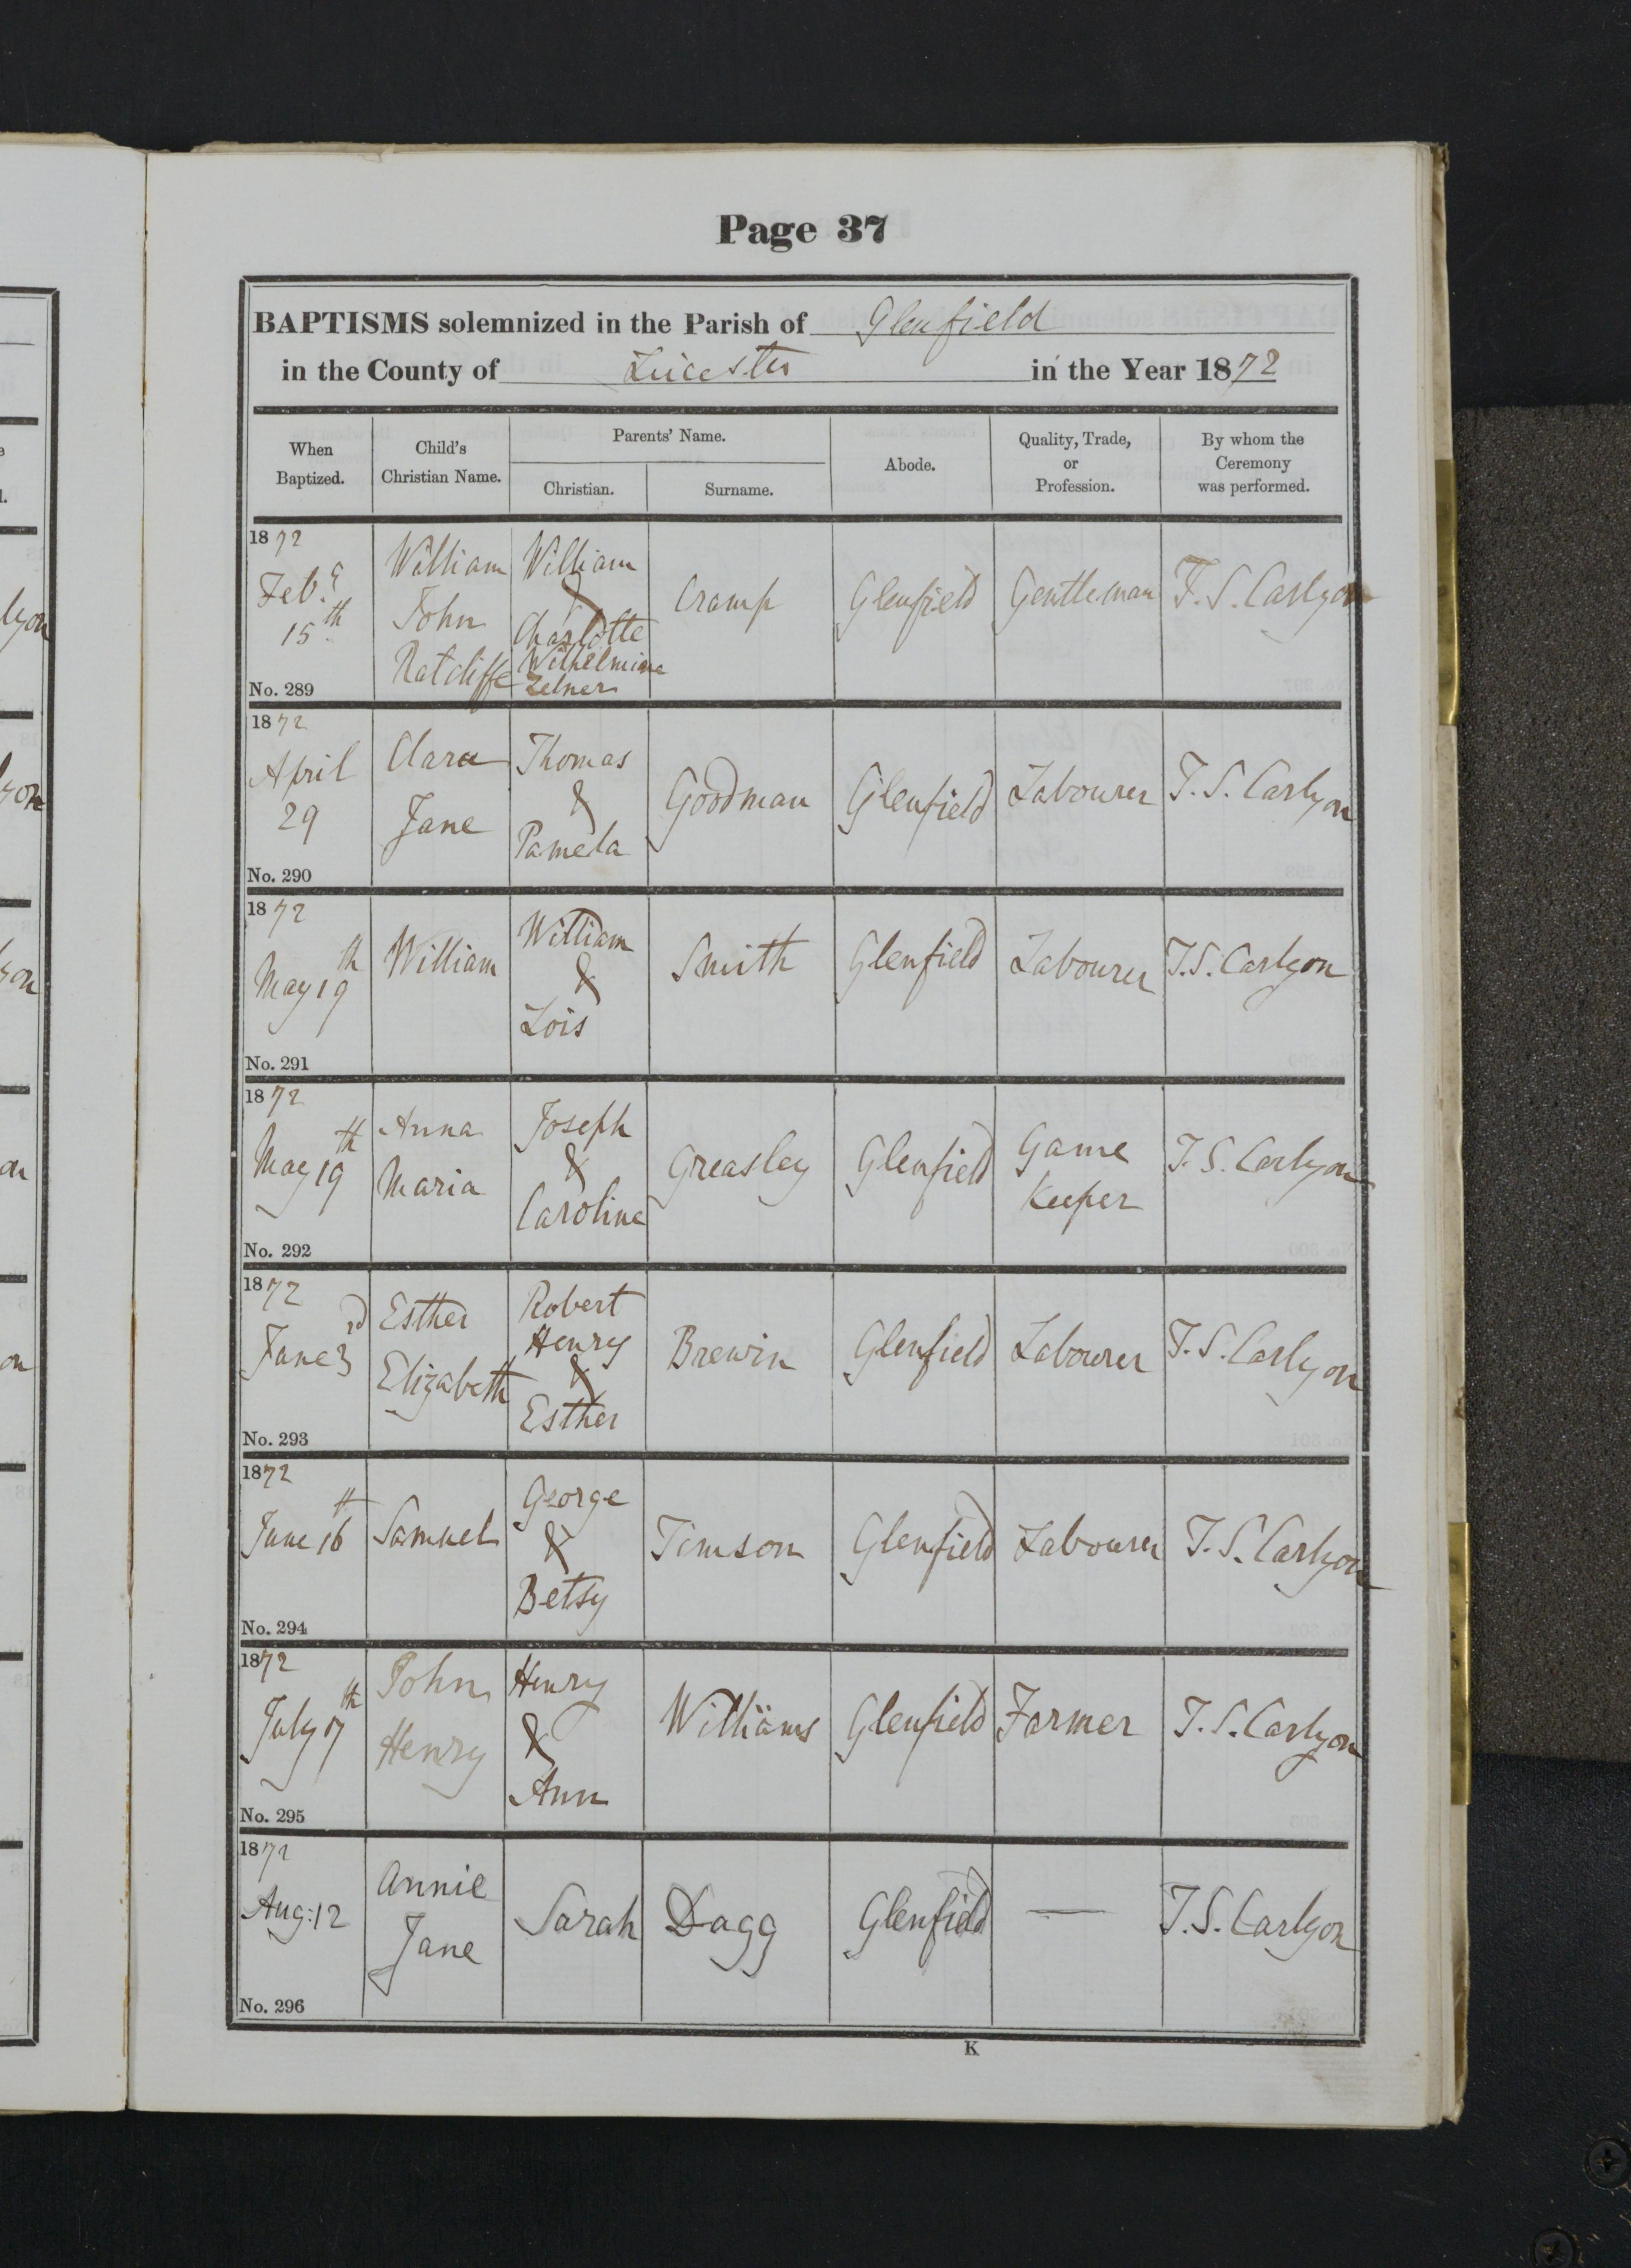 Page 37
BAPTISMS solemnized in the Parish of Glenfield
in the County of Leicester in the Year 1872
When Baptized.
Child's Christian Name.
Parents' Name.
Christian.
Surname.
Abode.
Quality, Trade, or Profession.
By whom the Ceremony was performed.
1872
Feby.
15th
No. 289
William
John
Ratcliffe
William
&
Charlotte
Wilhelmina
Zelner
Cramp
Glenfield
Gentleman
T. S. Carlyon
1872
April
29
No. 290
Clara
Jane
Thomas
&
Pamela
Goodman
Glenfield
Labourer
T. S. Carlyon
1872
May 19th
No. 291
William
William
&
Lois
Smith
Glenfield
Labourer
T. S. Carlyon
1872
May 19th
No. 292
Anna
Maria
Joseph
&
Caroline
Greasley
Glenfield
Game
Keeper
T. S. Carlyon
1872
June 3rd
No. 293
Esther
Elizabeth
Robert
Henry
&
Esther
Brewin
Glenfield
Labourer
T. S. Carlyon
1872
June 16th
No. 294
Samuel
George
&
Betsy
Timson
Glenfield
Labourer
T. S. Carlyon
1872
July 17th
No. 295
John
Henry
Henry
&
Ann
Williams
Glenfield
Farmer
T. S. Carlyon
1872
Aug: 12
No. 296
Annie
Jane
Sarah
Dagg
Glenfield
—
T. S. Carlyon
K